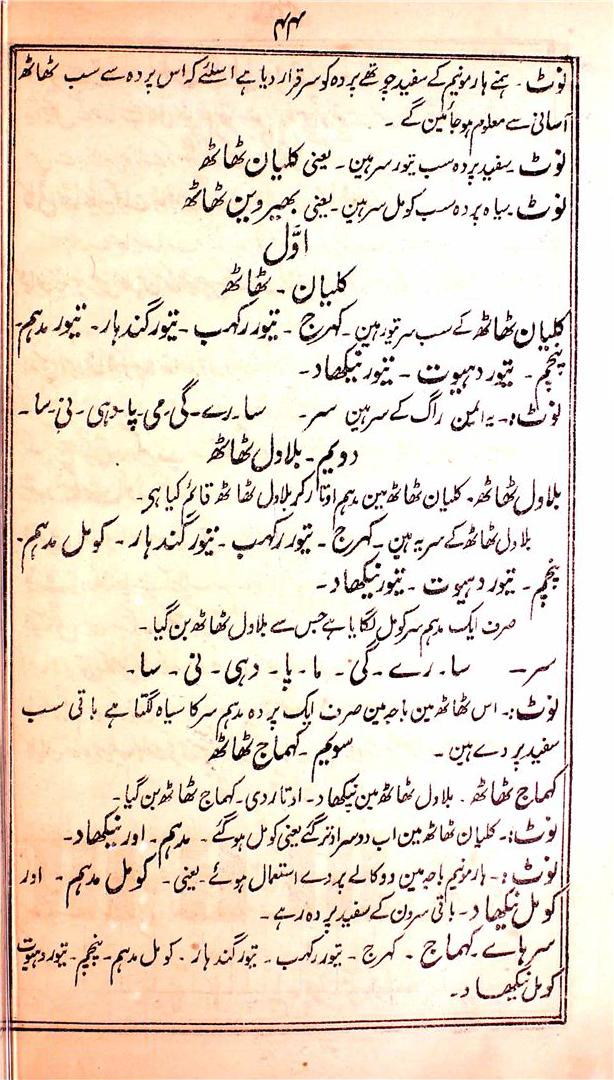 ۴۴
نوٹ۔ ہمنے ہارمونیم کے سفید چوتھے پردہ کو سر قرار دیا ہے اسلئے کہ اس پردہ سے سب ٹھاٹھ
آسانی سے معلوم ہو جائینگے۔
نوٹ۔ سفید پردہ سب تیور سر ہین۔ یعنی کلیان ٹھاٹھ
نوٹ۔ سیاہ پردہ سب کومل سر ہین۔ یعنی بھیروین ٹھاٹھ
اوّل
کلیان۔ ٹھاٹھ
کلیان ٹھاٹھ کے سب سر تیور ہین۔ کہرج۔ تیور رکھب۔ تیور گندہار۔ تیور مدہم۔
پنچم۔ تیور دہیوت۔ تیور نیکھاد۔
نوٹ:۔ یہ ایمن راگ کے سر ہین سر۔ سا۔ رے۔ گی۔ می۔ پا۔ دہی۔ نی۔ سا۔
دویم۔ بلاول ٹھاٹھ
بلاول ٹھاٹھ۔ کلیان ٹھاٹھ مین مدہم اوتار کر بلاول ٹھاٹھ قائم کیا ہی۔
بلاول ٹھاٹھ کے سر یہ ہین۔ کہرج۔ تیور رکھب۔ تیور گندہار۔ کومل مدہم۔
پنچم۔ تیور دہیوت۔ تیور نیکھاد۔
صرف ایک مدہم سر کومل لگایا ہے جس سے بلاول ٹھاٹھ بن گیا۔
سر۔ سا۔ رے۔ گی۔ ما۔ پا۔ دہی۔ نی۔ سا۔
نوٹ:۔ اس ٹھاٹھ مین باجہ مین صرف ایک پردہ مدہم سر کا سیاہ لگتا ہے باقی سب
سفید پردے ہین۔ سویم۔ کہماج ٹھاٹھ
کہماج ٹھاٹھ۔ بلاول ٹھاٹھ مین نیکھاد۔ اوتار دی۔ کہماج ٹھاٹھ بن گیا۔
نوٹ:۔ کلیان ٹھاٹھ مین اب دو سر اوتر گئے یعنی کومل ہو گئے۔ مدہم۔ اور نیکھاد۔
نوٹ:۔ ہارمونیم باجہ مین دو کالے پردے استعمال ہوئے۔ یعنی۔ کومل مدہم۔ اور
کومل نیکھاد۔ باقی سرون کے سفید پردہ رہے۔
سرہاے۔ کہماج۔ کہرج۔ تیور رکھب۔ تیور گندہار۔ کومل مدہم۔ پنچم۔ تیور دہیوت
کومل نیکھاد۔